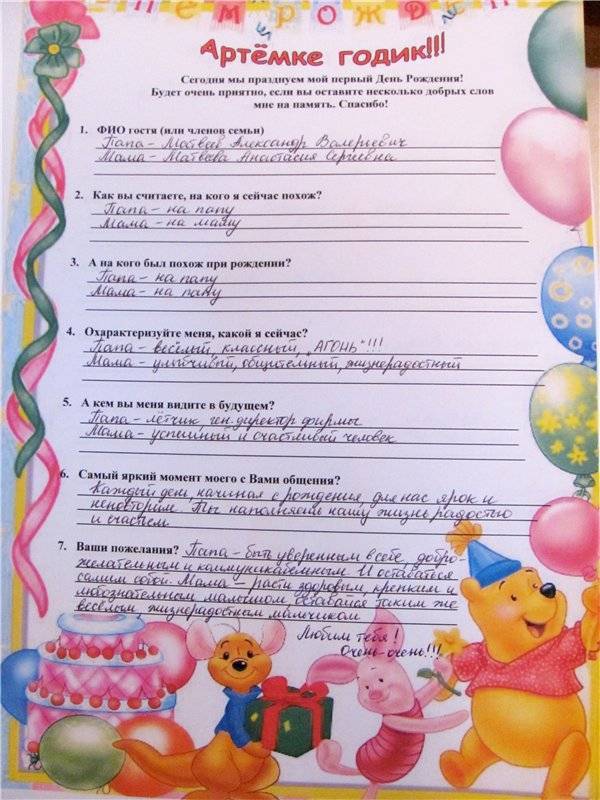 ЕМ РОЖДЕН
Артёмке годик!!!
Сегодня мы празднуем мой первый День Рождения!
Будет очень приятно, если вы оставите несколько добрых слов
мне на память. Спасибо!
1. ФИО гостя (или членов семьи)
Папа - Матвеев Александр Валерьевич
Мама - Матвеева Анастасия Сергеевна
2. Как вы считаете, на кого я сейчас похож?
Папа - на папу
Мама - на маму
3. А на кого был похож при рождении?
Папа - на папу
Мама - на папу
4. Охарактеризуйте меня, какой я сейчас?
Папа - весёлый, классный, "АГОНЬ"!!!
Мама - улыбчивый, общительный, жизнерадостный
5. А кем вы меня видите в будущем?
Папа - лётчик, ген. директор фирмы
Мама - успешный и счастливый человек
6. Самый яркий момент моего с Вами общения?
Каждый день, начиная с рождения для нас ярок и
неповторим. Ты наполняешь нашу жизнь радостью
и счастьем
7. Ваши пожелания? Папа - быть уверенным в себе, добро-
желательным и коммуникабельным. И оставаться
самим собой. Мама - расти здоровым, крепким и
любознательным малышом. Оставайся таким же
весёлым жизнерадостным мальчиком
Любим тебя!
Очень-очень!!!